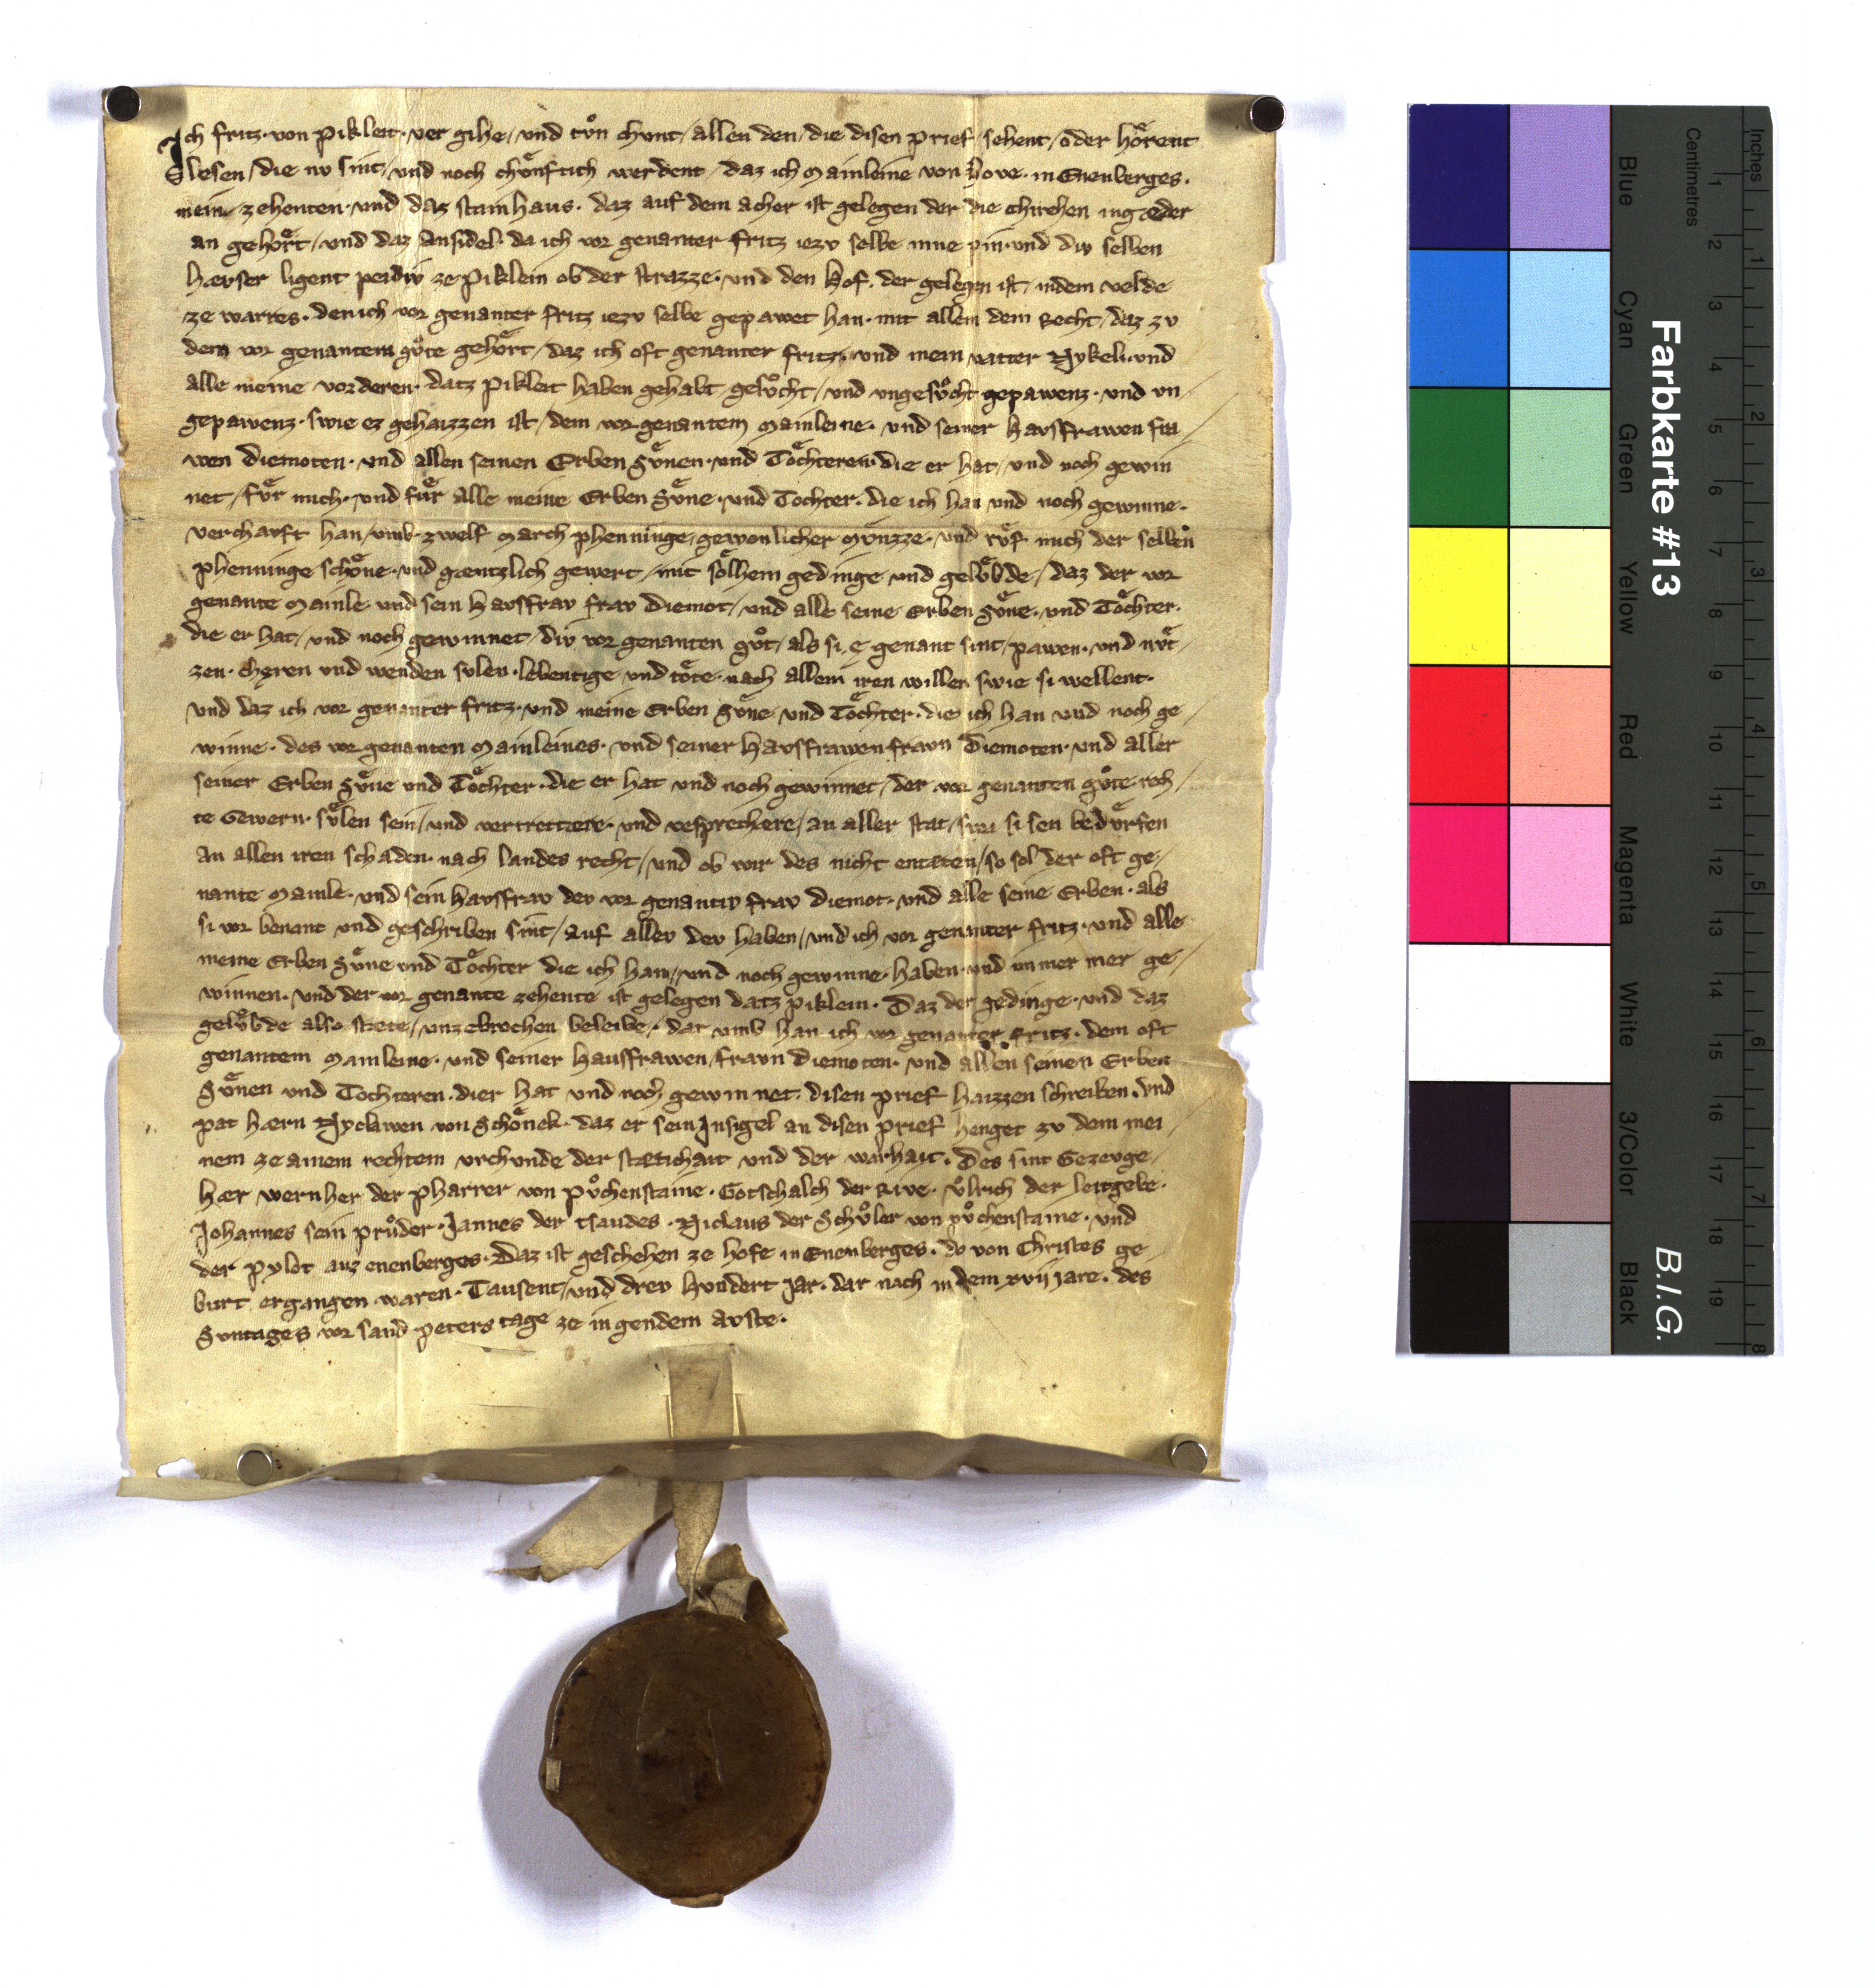 Ich fritz· von pikleit· ver gihe/ und tvͦn chunt/ allen den/ die disen prief/ sehent/ oder hoͤrent
lesen/ die nv sint/ und noch chvͤnftich werdent/ daz ich Mainleine von Hove· in Enenberges·
mein zehenten· und daz stainhaus· daz auf dem acher ist gelegen der die chirchen ingæder
an gehoͤrt/ und daz Ansidel· da ich vor genanter fritz iezv selbe inne pin· und div selben
hævser ligent peidiv ze piklein ob der strazze· und den Hof· der gelegen ist/ indem velde
ze warres· den ich vor genanter fritz iezv selbe gepawet han· mit allem dem recht/ daz zv
dem vor genantem gvͦte gehoͤrt/ daz ich oft genanter fritz· und mein vatter Nykel· und
alle meine vorderen· datz pikleit haben gehabt gesvͦcht/ und ungesvͦcht gepawenz· und un/
gepawenz· swie ez gehaizzen ist/ dem vor genantem Mainleine· und seiner havsfrawen fra/
wen diemoten· und allen seinen Erben Svͤnen· und Toͤchteren· die er hat/ und noch gewin
net/ fvͤr mich· und fvͤr alle meine Erben Svͤne· und Tochter· die ich han und noch gewinne·
verchavft han/ umb· zwelf March phenninge/ gewonlicher Mvͤnzze· und rvͤf mich der selben
phenninge schoͤne· und gæntzlich gewert/ mit soͤlhem gedinge und gelvͤbde/ daz der vor
genante Mainle· und sein havsfrav frav diemot/ und alle seine Erben Svͤne· und Toͤchter·
die er hat/ und noch gewinnet/ div vor genanten gvͦt/ als si ę genant sint/ pawen· und nvͤt/
zen· cheren und wenden svlen· lebentige und toͤte· nach allem iren willen swie si wellent·
und daz ich vor genanter fritz· und meine Erben Svͤne und Toͤchter· die ich han und noch ge/
winne· des vor genanten Mainleines· und seiner havsfrawen fravn Diemoten· und aller
seiner Erben Svͤne und Toͤchter· die er hat und noch gewinnet/ der vor genanten gvͦte rech/
te Gewern· svͤlen sein/ und vertrettære· und vesprechere/ an aller stat/ swa si sen bedvͤrfen
an allen iren schaden· nach landes recht/ und ob wir des nicht entæten/ so sol der oft ge/
nante Mainle· und sein havsfrav dev vor genantiv frav diemot· und alle seine Erben· als
si vor benant und geschriben sint/ auf allev dev haben/ und ich vor genanter fritz· und alle
meine Erben Svͤne und Toͤchter die ich han/ und noch gewinne· haben· und immer mer ge/
winnen· und der vor genante zehente ist gelegen datz piklein· Daz der gedinge· und daz
gelvͤbde also stæte/ unzebrochen beleibe/ dar umb han ich vor genanter fritz· dem oft
genantem Mainleine· und seiner hausfrawen/ fravn diemoten· und allen seinen Erben
Svͤnen und Tochteren· dier hat und noch gewinnet· disen prief haizzen schreiben· Und
pat hærn Nyclawen von Schoͤnek· daz er sein Insigel an disen prief henget zv dem mei/
nem ze ainem rechtem vrchunde der stætichait und der warhait· Des sint Gezevge/
hær wernher der pharrer von pvͦchenstaine· Gotschalch der Rive· Vͦlrich der leitgebe·
Johannes sein prvͦder· Jannes der tsaudes· Niclaus der Schvͦler von pvͦchenstaine· und
der pylot auz enenberges· Daz ist geschehen ze hofe in Enenberges· do von Christes ge/
burt ergangen waren· Tausent/ und drev hvndert jar· dar nach in dem xvij jare· des
Svntages vor sand peters tage ze in gendem avste·
Farbkarte #13
B.I.G.
Inches
Centimetres
Blue
Cyan
Green
Yellow
Red
Magenta
White
3/Color
Black
1 2 3 4 5 6 7 8 9 10 11 12 13 14 15 16 17 18 19
1 2 3 4 5 6 7 8